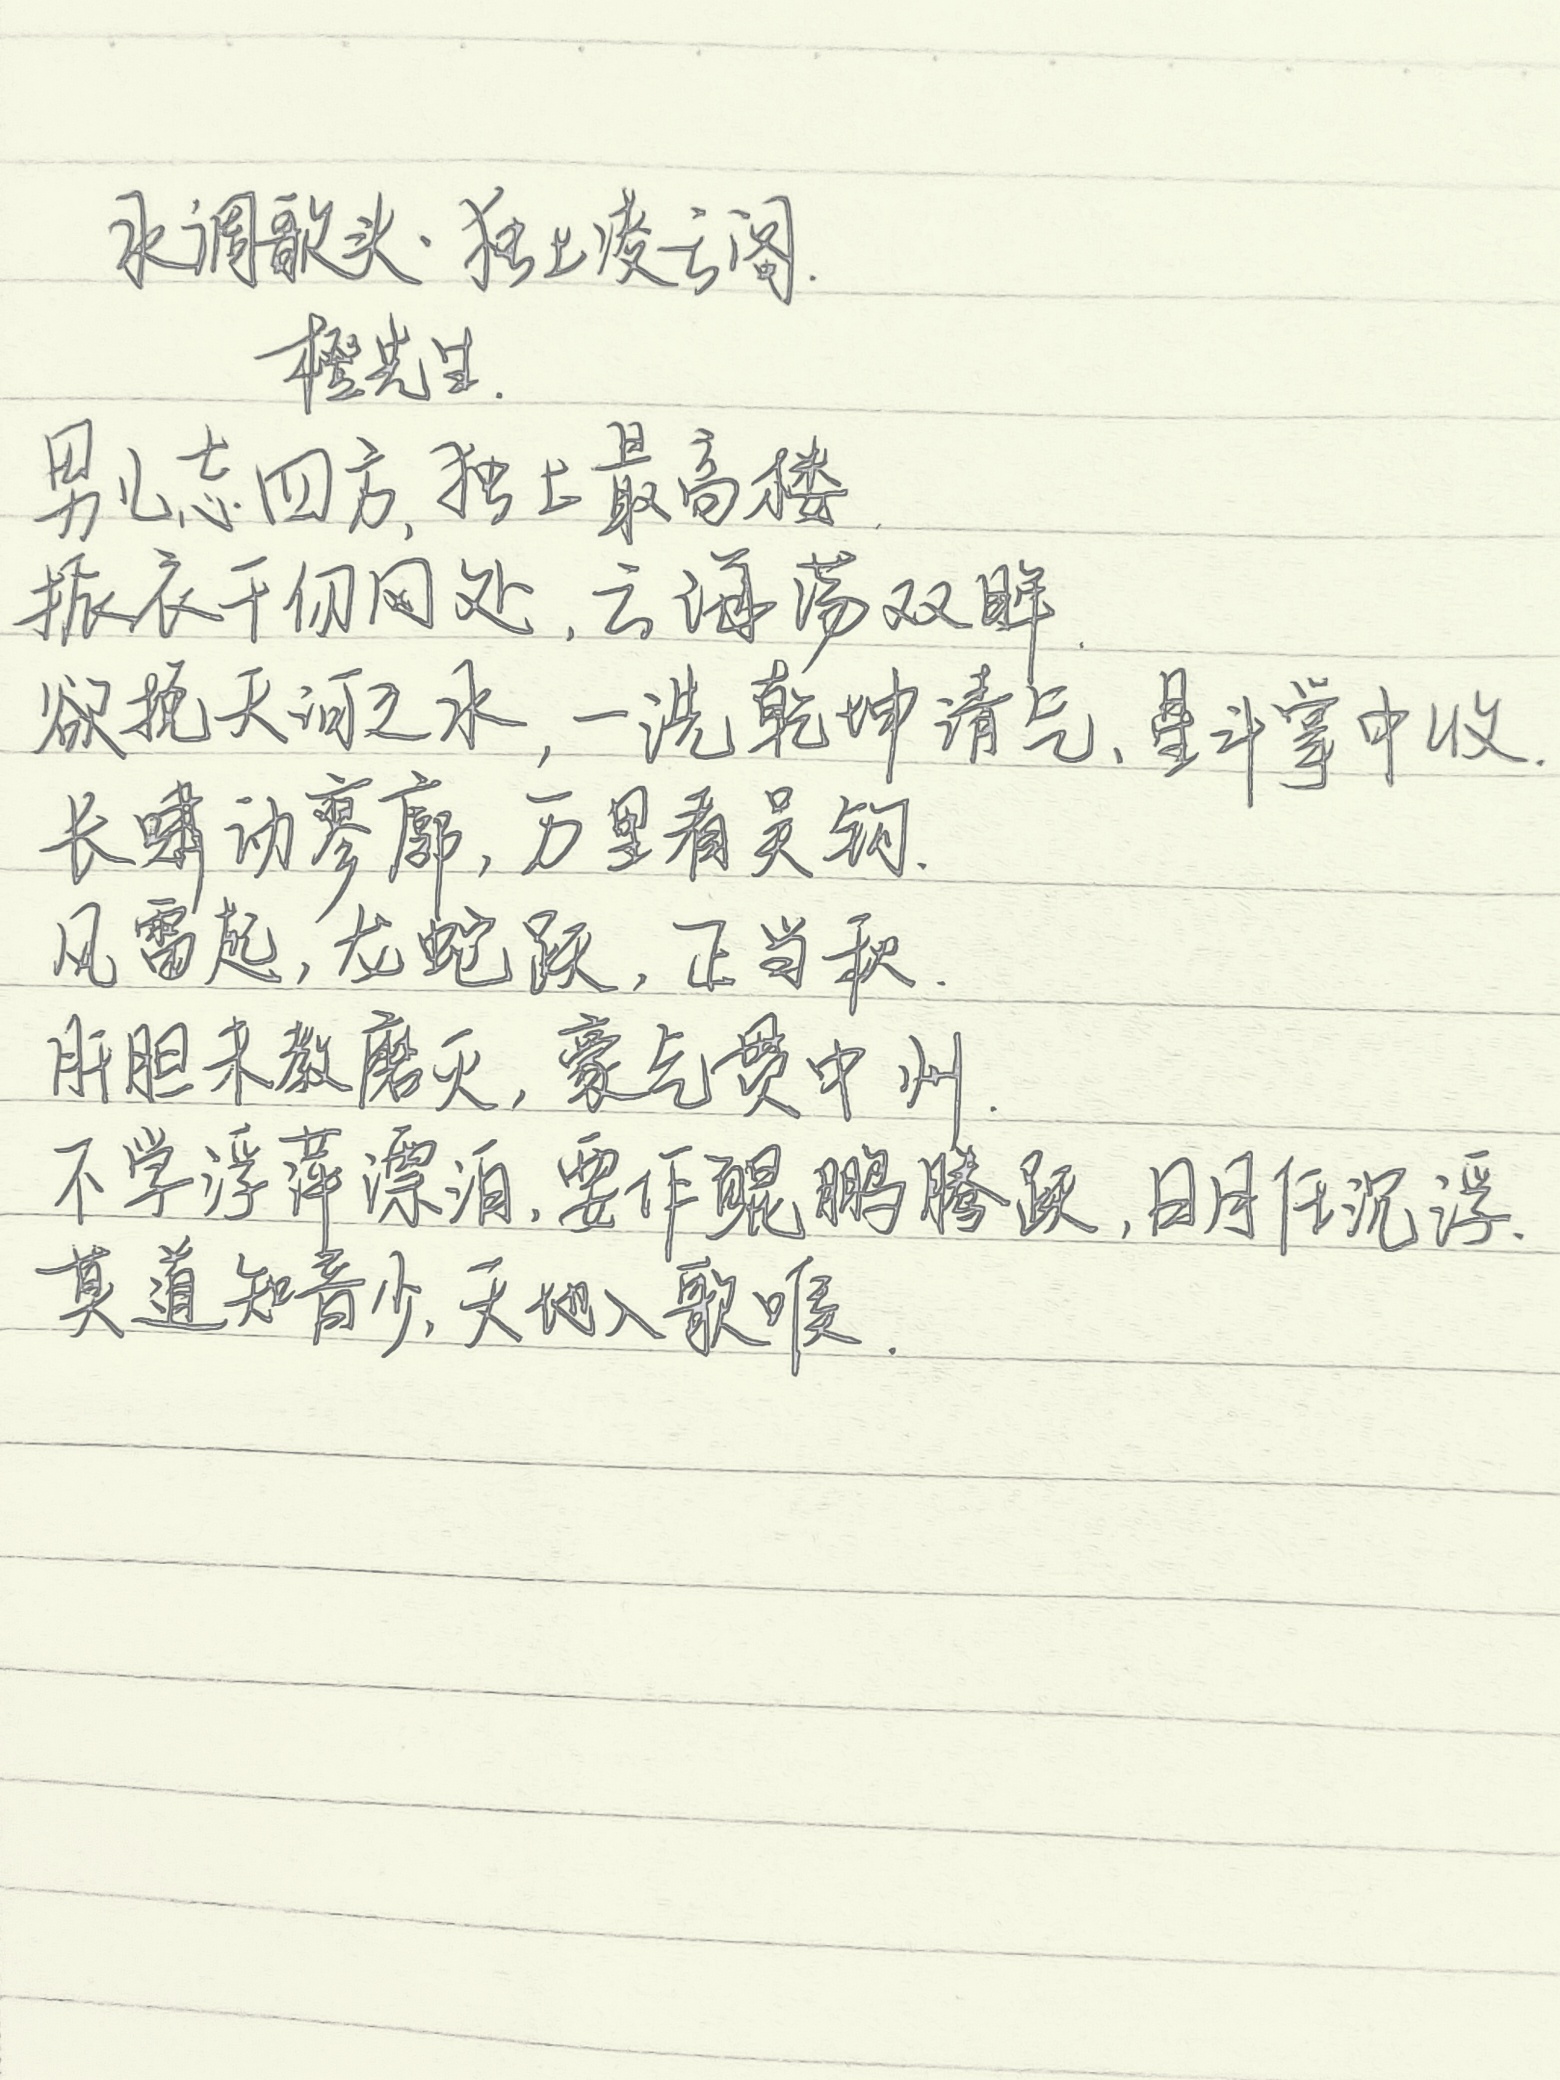 水调歌头·独上凌云阁.
橙先生.
男儿志四方,独上最高楼.
振衣千仞冈处,云海荡双眸.
欲挽天河之水,一洗乾坤清气、星斗掌中收.
长啸动寥廓,万里看吴钩.
风雷起,龙蛇跃,正当秋.
肝胆未教磨灭,豪气贯中州.
不学浮萍漂泊,要作鲲鹏腾跃,日月任沉浮.
莫道知音少,天地入歌喉.